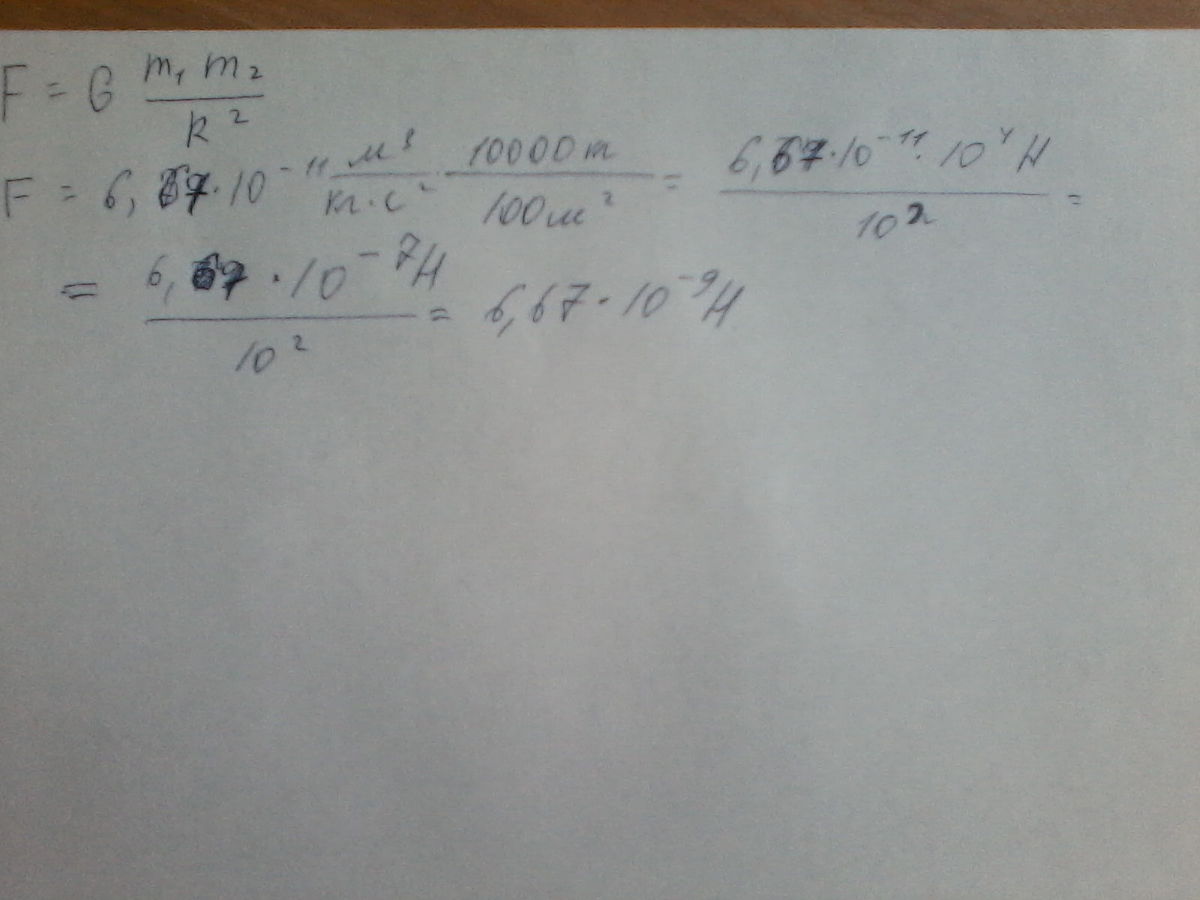 F = G m₁ m₂ / R²
F = 6,67·10⁻¹¹ м³/кг·с² · 10000т / 100м² = 6,67·10⁻¹¹·10⁴Н / 10² =
= 6,67·10⁻⁷Н / 10² = 6,67·10⁻⁹Н